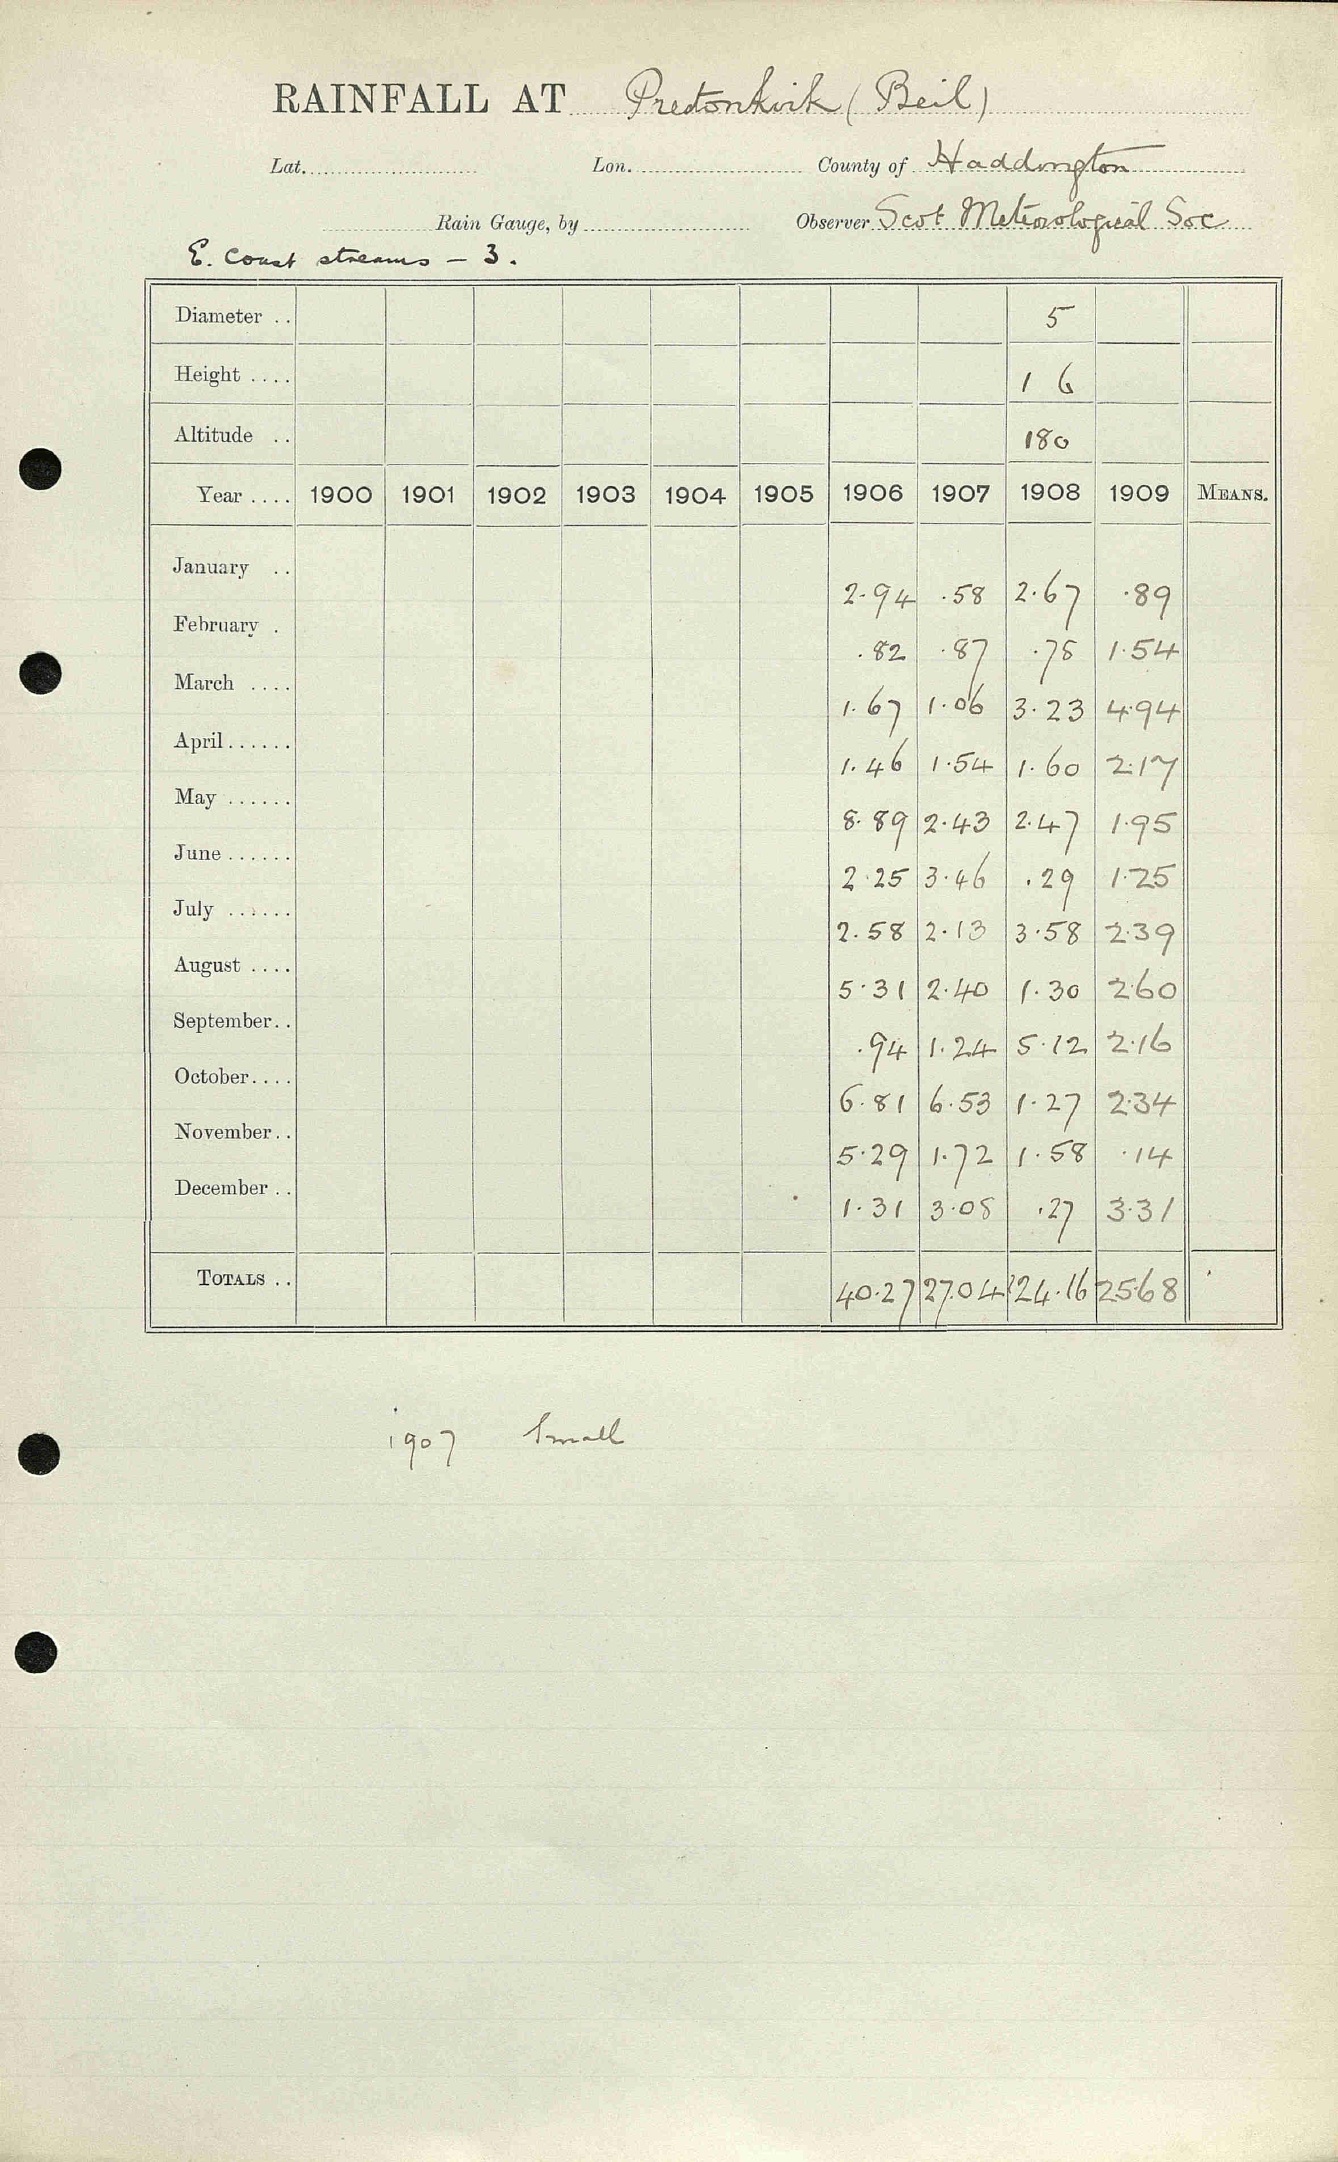 RAINFALL AT Prestonkirk (Beil)
Lat. Lon. County of Haddington
Rain Gauge, by Observer Scot Meteorological Soc
E. Coast streams – 3.
Diameter .. 5
Height .... 1 6
Altitude .. 180
Year .... 1900 1901 1902 1903 1904 1905 1906 1907 1908 1909 MEANS.
January .. 2.94 .58 2.67 .89
February . .82 .87 .78 1.54
March .... 1.67 1.06 3.23 4.94
April...... 1.46 1.54 1.60 2.17
May ...... 8.89 2.43 2.47 1.95
June ...... 2.25 3.46 .29 1.25
July ...... 2.58 2.13 3.58 2.39
August .... 5.31 2.40 1.30 2.60
September.. .94 1.24 5.12 2.16
October.... 6.81 6.53 1.27 2.34
November.. 5.29 1.72 1.58 .14
December .. 1.31 3.08 .27 3.31
TOTALS .. 40.27 27.04 24.16 25.68
1907 Small